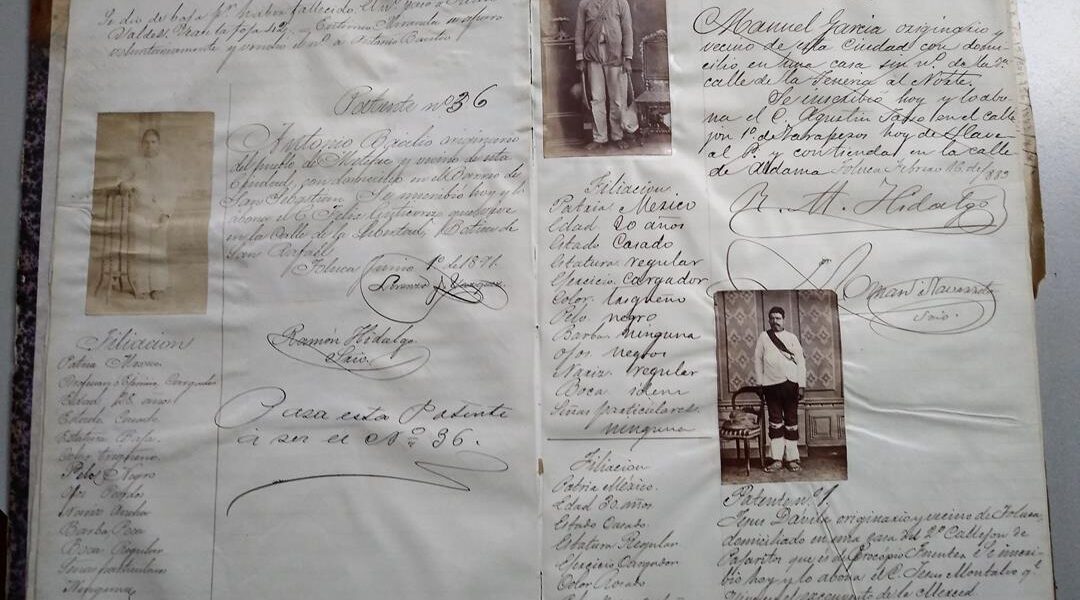 Se dio de baja pr. haber fallecido. El nº pasó a
Valdés
voluntariamente y vendió el nº a Antonio Bautis
Patente nº 36
Antonio Basilio originario
del pueblo de y vecino de esta
Ciudad, con domicilio en el Barrio de
San Sebastian. Se inscribió hoy y lo
abona el C. Felix Gutierrez que vive
en la Calle de la Libertad, Botica de
San Rafael
Toluca Junio 1º de 1891.
Lorenzo J. Vazquez
Ramón Hidalgo
Srio.
Pasa esta Patente
á ser el Nº 36.
Filiacion
Patria Mexico
Cargador
Edad 28 años
Estado Casado
Estatura Baja
Color Trigueño
Pelo Negro
Ojos Pardos
Nariz
Barba Poca
Boca Regular
Señas particulares
Ninguna
Manuel Garcia originario y
vecino de esta Ciudad con domi-
cilio en una casa sin nº de la 2ª
calle de la Teneria al Norte.
Se inscribió hoy y lo abo-
na el C. Agustin en el calle
jon 1º de Zarapesos hoy de
al P. y con tienda en la calle
de Aldama Toluca Febrero 16 de 1883
R. M. Hidalgo
Navarrete
Srio.
Filiacion
Patria Mexico
Edad 20 años
Estado Casado
Estatura regular
Ejercicio Cargador
Color trigueño
Pelo negro
Barba ninguna
Ojos negros
Nariz regular
Boca idem
Señas particulares
ninguna
Filiacion
Patria México.
Edad 30 años
Estado Casado
Estatura Regular
Ejercicio Cargador
Color Rosado
Patente nº
Jesus Dávila originario y vecino de Toluca,
domiciliado en una casa del 2º Callejon de
Pajaritos que es de Procópio Fuentes. Se inscri-
bió hoy y lo abona el C. Jesus Montalvo qe.
vive en el de la Merced